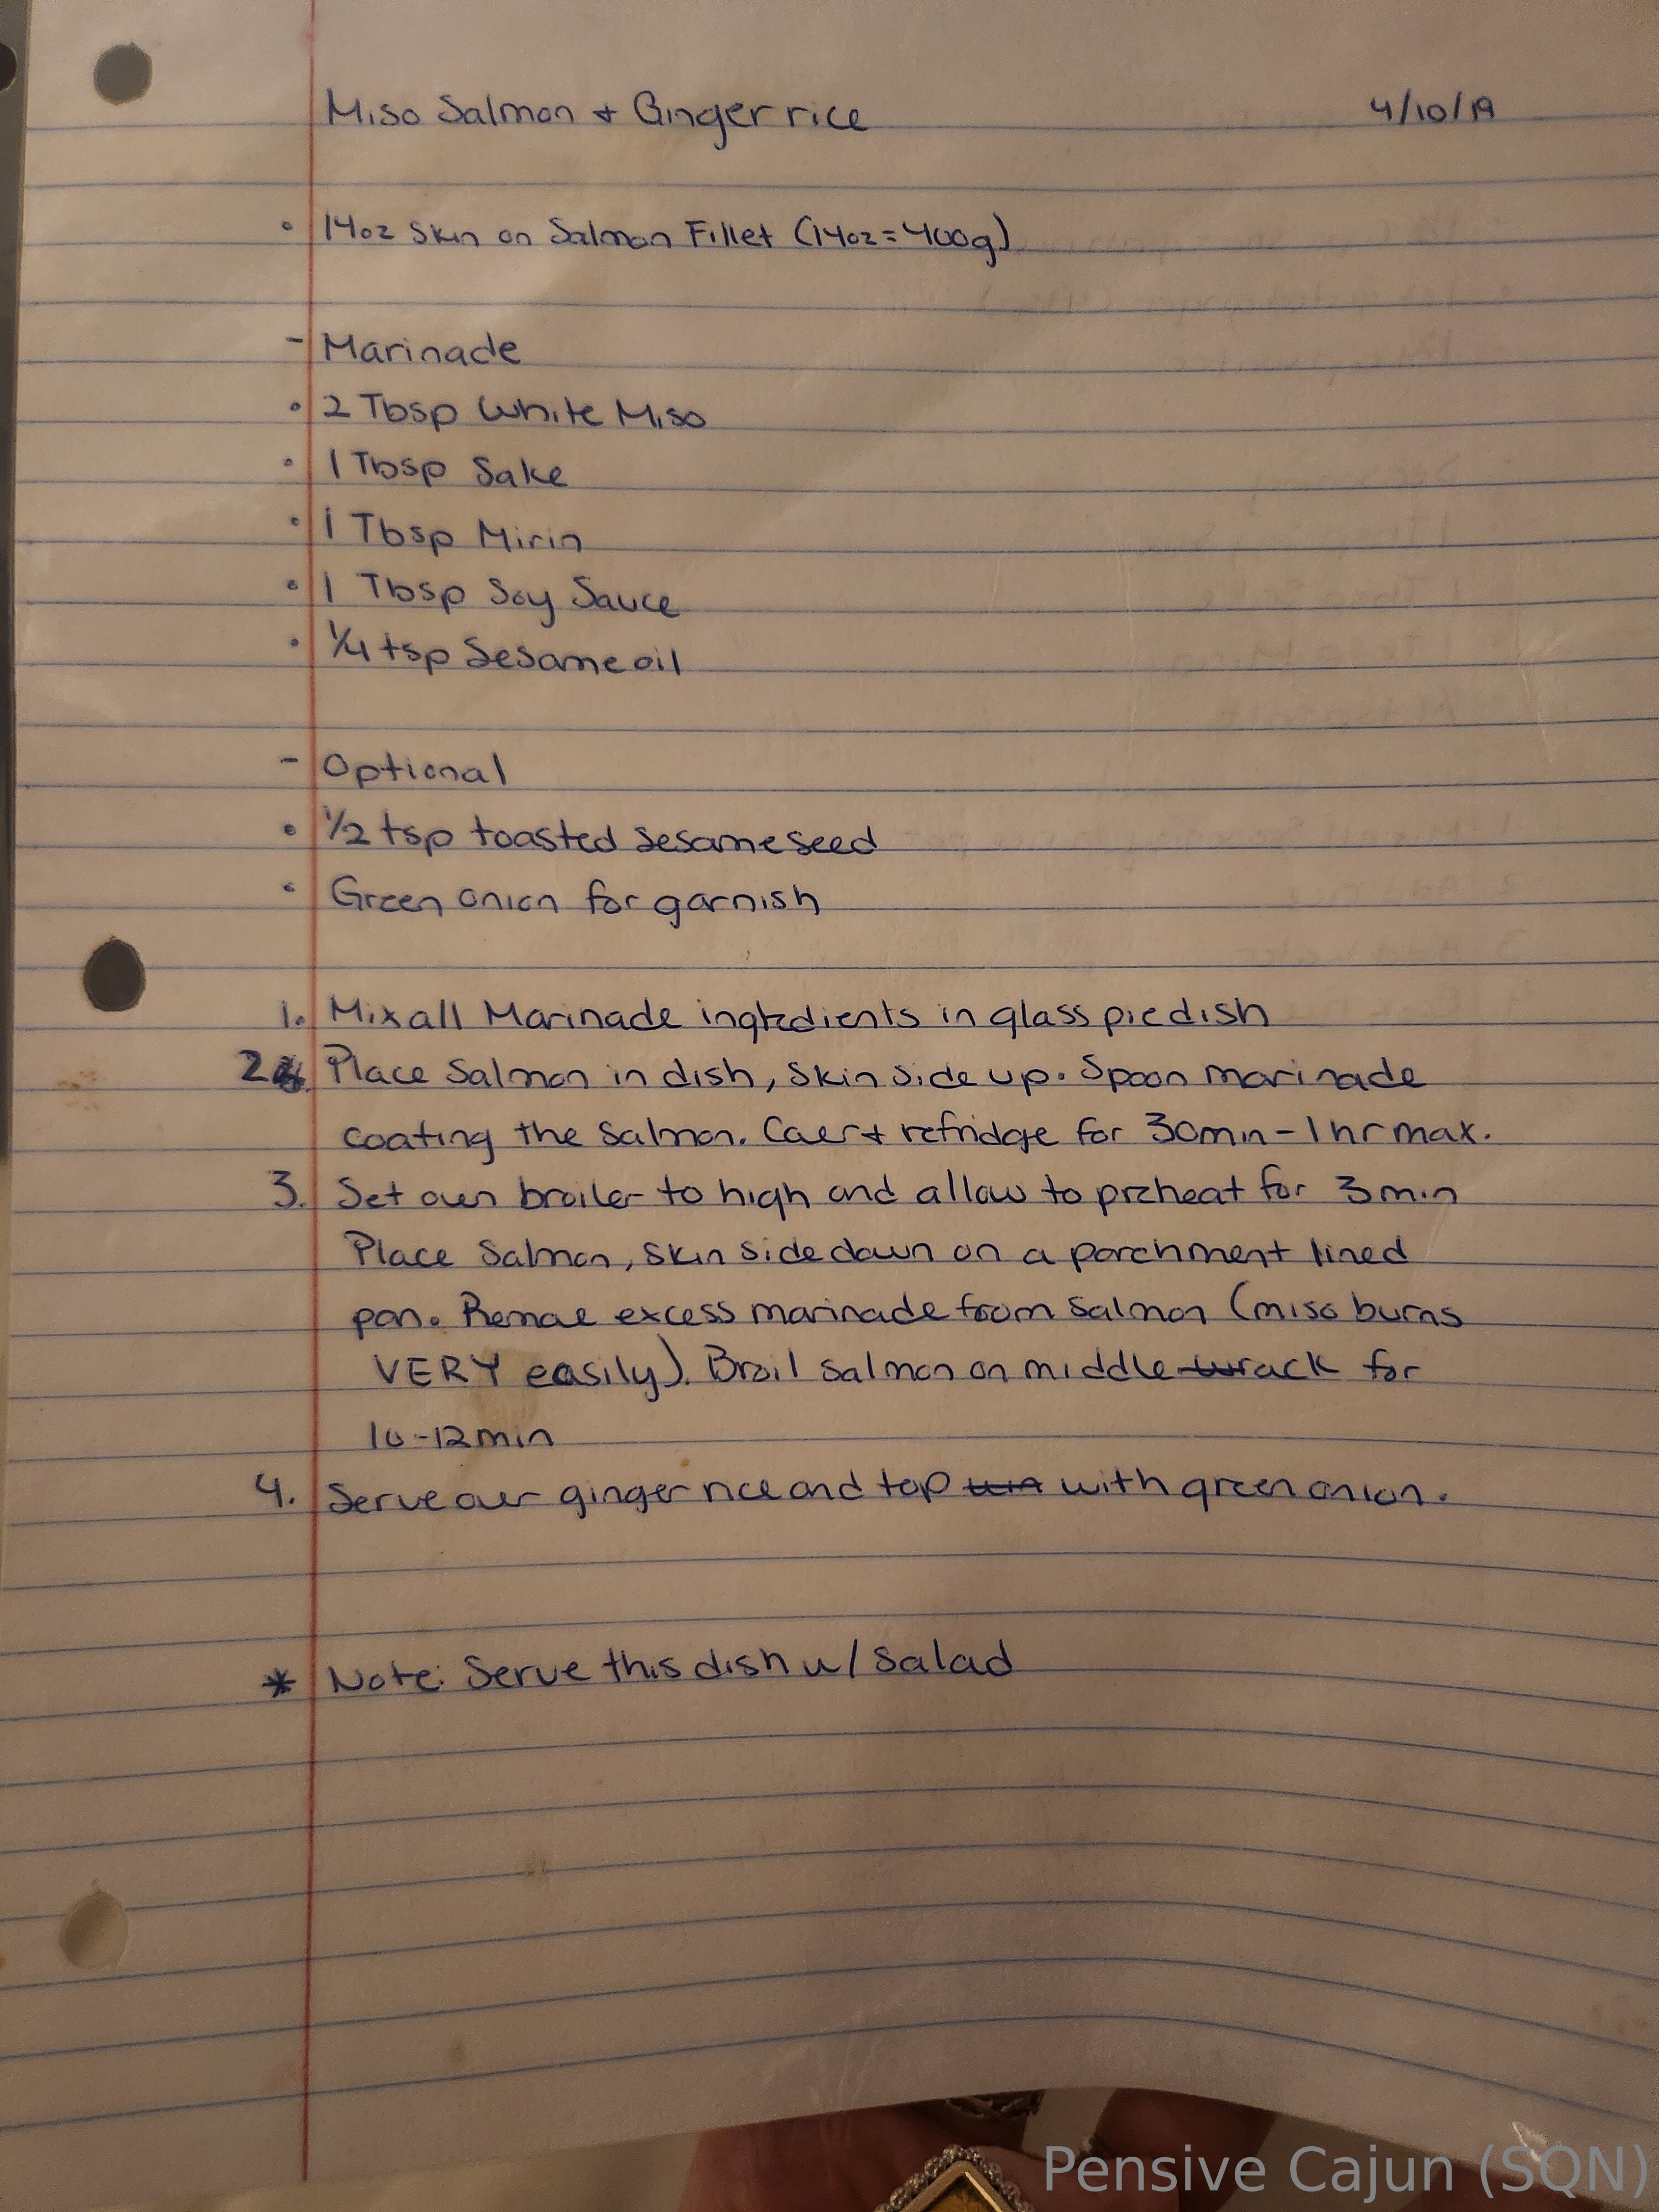 Miso Salmon + Ginger rice 4/10/19
• 14oz Skin on Salmon Fillet (14oz=400g)
- Marinade
• 2 Tbsp White Miso
• 1 Tbsp Sake
• 1 Tbsp Mirin
• 1 Tbsp Soy Sauce
• 1/4 tsp Sesame oil
- Optional
• 1/2 tsp toasted sesame seed
• Green onion for garnish
1. Mix all Marinade ingredients in glass pie dish
2. Place Salmon in dish, skin side up. Spoon marinade
coating the Salmon. Cover + refridge for 30min-1hr max.
3. Set oven broiler to high and allow to preheat for 3min
Place Salmon, skin side down on a parchment lined
pan. Remove excess marinade from salmon (miso burns
VERY easily). Broil salmon on middle rack for
10-12min
4. Serve over ginger rice and top with green onion.
* Note: Serve this dish w/ salad
Pensive Cajun (SQN)